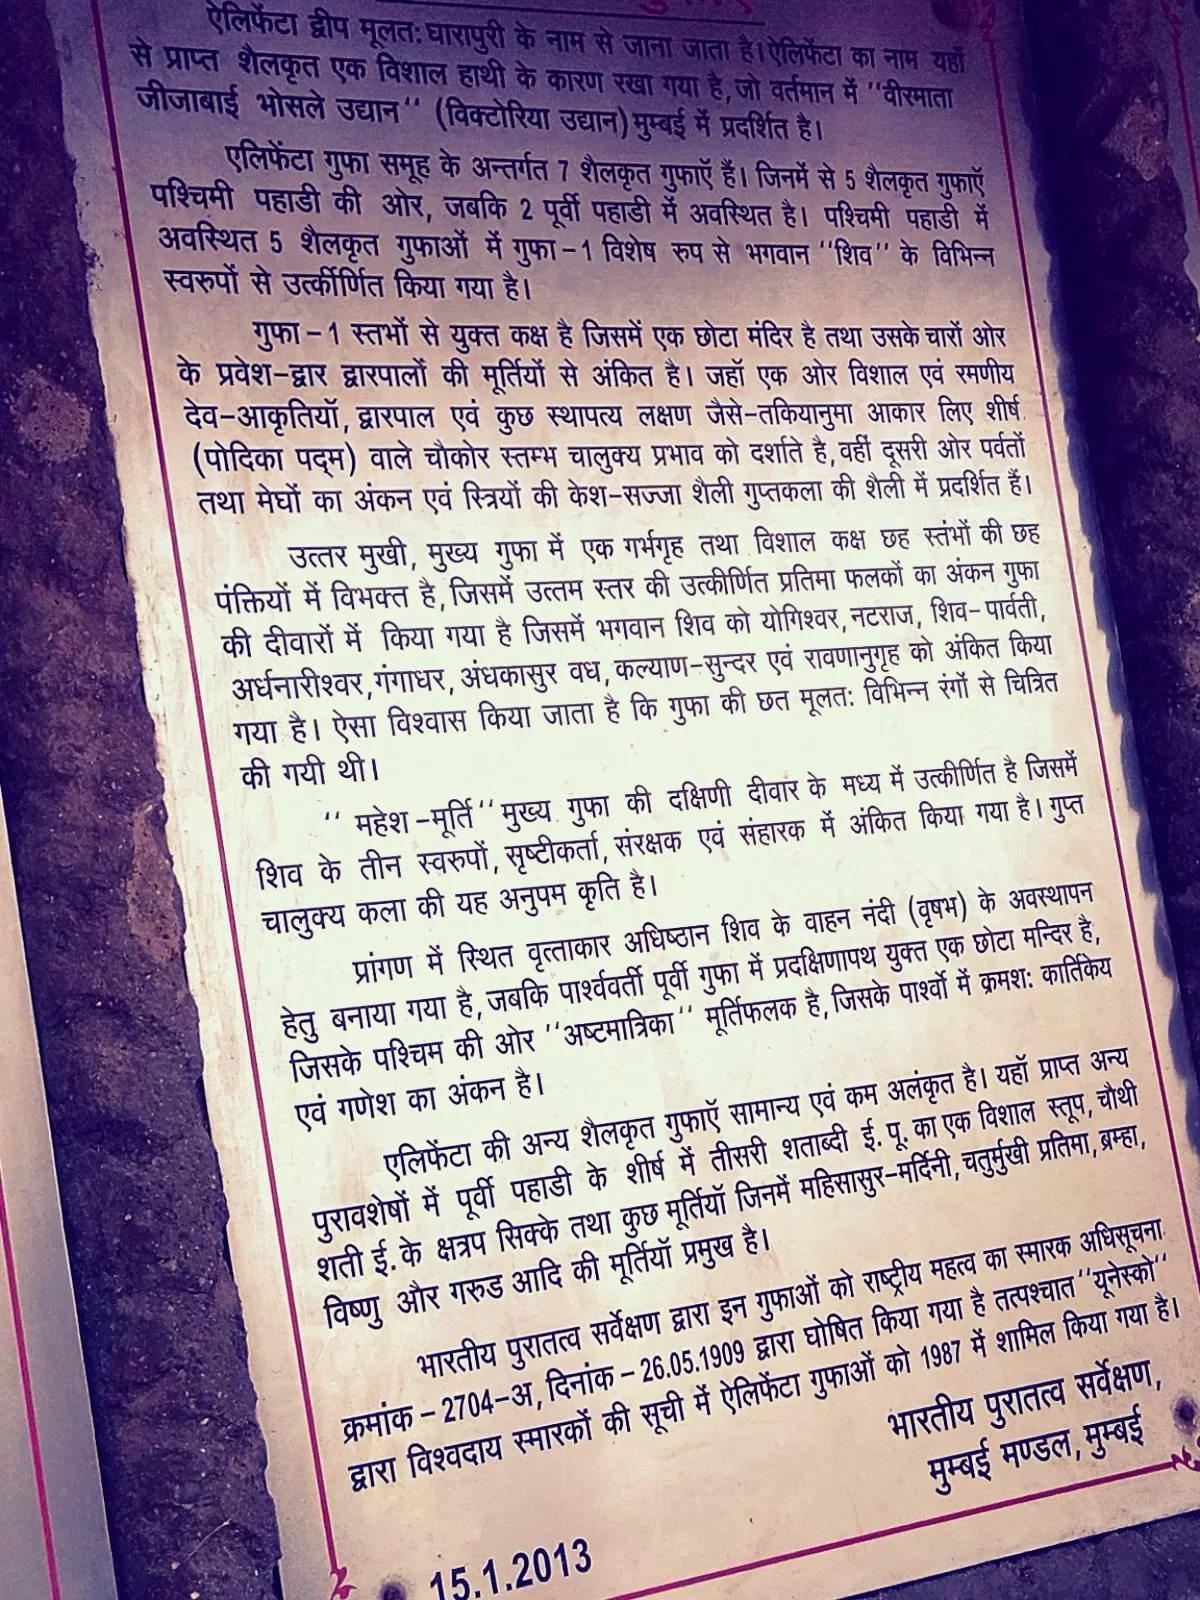 ऐलिफेंटा द्वीप मूलत: घारापुरी के नाम से जाना जाता है। ऐलिफेंटा का नाम यहाँ
से प्राप्त शैलकृत एक विशाल हाथी के कारण रखा गया है, जो वर्तमान में "वीरमाता
जीजाबाई भोसले उद्यान" (विक्टोरिया उद्यान) मुम्बई में प्रदर्शित है।
एलिफेंटा गुफा समूह के अन्तर्गत 7 शैलकृत गुफाएॅ हैं। जिनमें से 5 शैलकृत गुफाएॅ
पश्चिमी पहाडी की ओर, जबकि 2 पूर्वी पहाडी में अवस्थित है। पश्चिमी पहाडी में
अवस्थित 5 शैलकृत गुफाओं में गुफा-1 विशेष रुप से भगवान "शिव" के विभिन्न
स्वरुपों से उर्त्कीर्णित किया गया है।
गुफा-1 स्तभों से युक्त कक्ष है जिसमें एक छोटा मंदिर है तथा उसके चारों ओर
के प्रवेश-द्वार द्वारपालों की मूर्तियों से अंकित है। जहॉ एक ओर विशाल एवं रमणीय
देव-आकृतियॉ, द्वारपाल एवं कुछ स्थापत्य लक्षण जैसे-तकियानुमा आकार लिए शीर्ष
(पोदिका पद्म) वाले चौकोर स्तम्भ चालुक्य प्रभाव को दर्शाते है, वहीं दूसरी ओर पर्वतों
तथा मेघों का अंकन एवं स्त्रियों की केश-सज्जा शैली गुप्तकला की शैली में प्रदर्शित हैं।
उत्तर मुखी, मुख्य गुफा में एक गर्भगृह तथा विशाल कक्ष छह स्तंभों की छह
पंक्तियों में विभक्त है, जिसमें उत्तम स्तर की उत्कीर्णित प्रतिमा फलकों का अंकन गुफा
की दीवारों में किया गया है जिसमें भगवान शिव को योगिश्वर, नटराज, शिव-पार्वती,
अर्धनारीश्वर, गंगाधर, अंधकासुर वध, कल्याण-सुन्दर एवं रावणानुगृह को अंकित किया
गया है। ऐसा विश्वास किया जाता है कि गुफा की छत मूलत: विभिन्न रंगों से चित्रित
की गयी थी।
"महेश-मूर्ति" मुख्य गुफा की दक्षिणी दीवार के मध्य में उत्कीर्णित है जिसमें
शिव के तीन स्वरुपों, सृष्टीकर्ता, संरक्षक एवं संहारक में अंकित किया गया है। गुप्त
चालुक्य कला की यह अनुपम कृति है।
प्रांगण में स्थित वृत्ताकार अधिष्ठान शिव के वाहन नंदी (वृषभ) के अवस्थापन
हेतु बनाया गया है, जबकि पार्श्ववर्ती पूर्वी गुफा में प्रदक्षिणापथ युक्त एक छोटा मन्दिर है,
जिसके पश्चिम की ओर "अष्टमात्रिका" मूर्तिफलक है, जिसके पार्श्वों में क्रमश: कार्तिकेय
एवं गणेश का अंकन है।
एलिफेंटा की अन्य शैलकृत गुफाएॅ सामान्य एवं कम अलंकृत है। यहॉ प्राप्त अन्य
पुरावशेषों में पूर्वी पहाडी के शीर्ष में तीसरी शताब्दी ई. पू. का एक विशाल स्तूप, चौथी
शती ई. के क्षत्रप सिक्के तथा कुछ मूर्तियॉ जिनमें महिसासुर-मर्दिनी, चतुर्मुखी प्रतिमा, ब्रम्हा,
विष्णु और गरुड आदि की मूर्तियॉ प्रमुख है।
भारतीय पुरातत्व सर्वेक्षण द्वारा इन गुफाओं को राष्ट्रीय महत्व का स्मारक अधिसूचना
क्रमांक-2704-अ, दिनांक-26.05.1909 द्वारा घोषित किया गया है तत्पश्चात "यूनेस्को"
द्वारा विश्वदाय स्मारकों की सूची में ऐलिफेंटा गुफाओं को 1987 में शामिल किया गया है।
भारतीय पुरातत्व सर्वेक्षण,
मुम्बई मण्डल, मुम्बई
15.1.2013